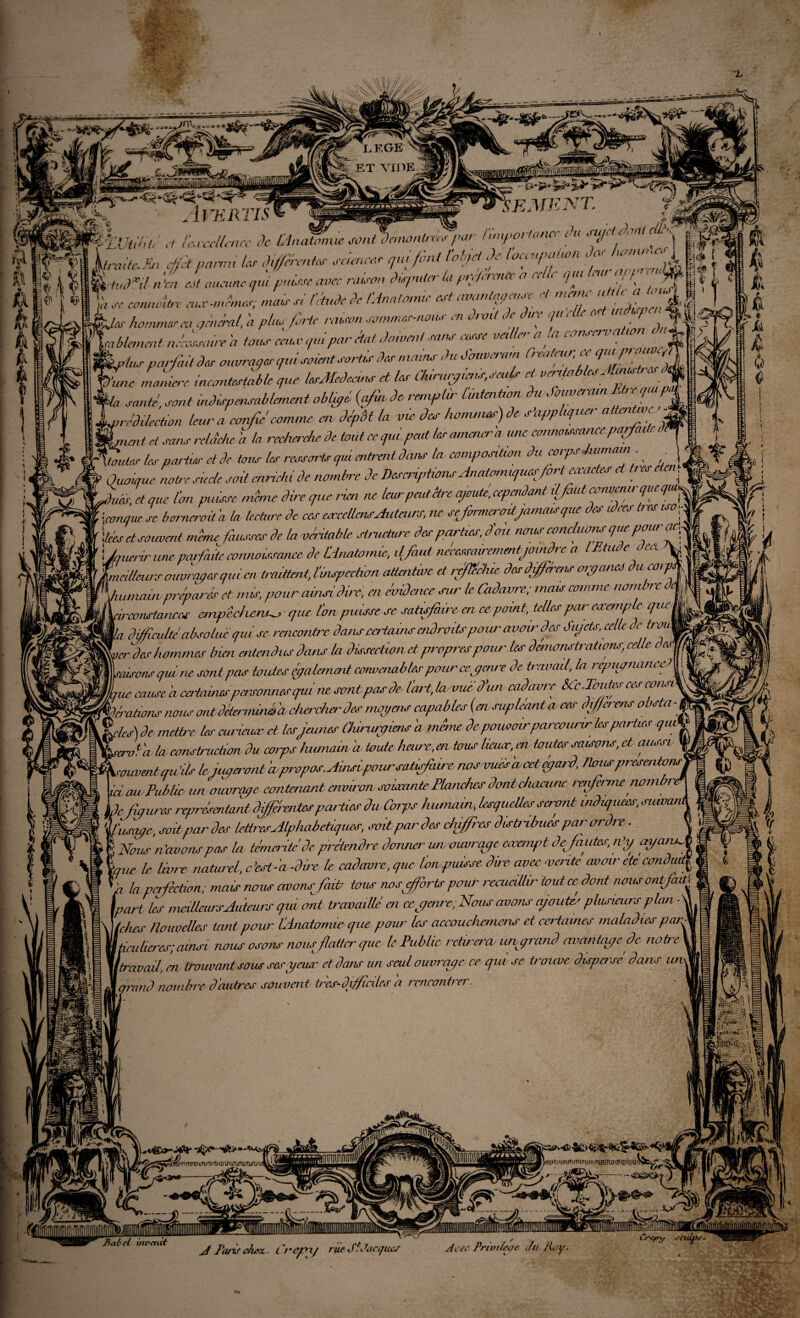 2
LEGE
ET VIDE
AVERTISSEMENT.
L'Utilité et l'excellence de L'Anatomie sont démontrées par l'importance du sujet dont elle
traite. En effet parmi les différentes sciences qui font l'objet de l'occupation des hommes
n'en est aucune qui puisse avec raison disputer la préférence a celle qui leur apprend
a se connoitre eux-mêmes; mais si l'etude de L'Anatomie est avantageuse et même utile a tous
les hommes en général, a plus forte raison sommes-nous en droit de dire qu'elle est indispen
sablement nécessaire a tous ceux qui par état doivent sans cesse veiller a la conservation du
plus parfait des ouvrages qui soient sortis des mains du Souverain Créateur; ce qui prouve
d'une maniere incontestable que les Medecins et les Chirurgiens, seuls et véritables Ministres de
la santé, sont indispensablement obligé (afin de remplir l'intention du Souverain Etre qui par
prédilection leur a confié comme en dépôt la vie des hommes) de s'appliquer attentive-
ment et sans relâche a la recherche de tout ce qui peut les amener a une connoissance parfaite de
toutes les parties et de tous les ressorts qui entrent dans la composition du corps humain.
Quoique notre siecle soit enrichi de nombre de Descriptions Anatomiques fort exactes et tres éten
dues, et que l'on puisse même dire que rien ne leur peut être ajouté, cependant il faut convenir que qui
conque se borneroit a la lecture de ces excellens Auteurs, ne se formeroit jamais que des idées tres iso
lées et souvent même fausses de la véritable structure des parties, d'ou nous concluons que pour ac
querir une parfaite connoissance de L'Anatomie, il faut nécessairement joindre a l'Etude des
meilleurs ouvrages qui en traittent, l'inspection attentive et refléchie des différens organes du corps
humain préparés et mis, pour ainsi dire, en évidence sur le Cadavre; mais comme nombre de
circonstances empêchent que l'on puisse se satisfaire en ce point, telles par exemple que
la difficulté absolue qui se rencontre dans certains endroits pour avoir des Sujets, celle de trou
ver des hommes bien entendus dans la dissection et propres pour les démonstrations, celle des
saisons qui ne sont pas toutes également convenables pour ce genre de travail, la répugnance
que cause a certaines personnes qui ne sont pas de l'art, la vue d'un cadavre &c. Toutes ces consi
dérations nous ont déterminés a chercher des moyens capables (en supléant a ces différens obsta-
cles) de mettre les curieux et les jeunes Chirurgiens a même de pouvoir parcourir les parties qui
servt a la construction du corps humain a toute heure, en tous lieux, en toutes saisons, et aussi
souvent qu'ils le jugeront a propos. Ainsi pour satisfaire nos vues a cet égard, Nous présentons
ici au Public un ouvrage contenant environ soixante Planches dont chacune renferme nombre
de figures représentant différentes parties du Corps humain, lesquelles seront indiquées, suivant
l'usage, soit par des lettres Alphabetiques, soit par des chiffres distribués par ordre.
Nous n'avons pas la témerité de prétendre donner un ouvrage exempt de fautes, n'y ayant
que le livre naturel, c'est-a-dire le cadavre, que l'on puisse dire avec verité avoir eté conduit
a la perfection; mais nous avons fait tous nos efforts pour recueillir tout ce dont nous ont fait
part les meilleurs Auteurs qui ont travaillé en ce genre; Nous avons ajouté plusieurs plan-
ches Nouvelles tant pour L'Anatomie que pour les accouchemens et certaines maladies par
ticulieres; ainsi nous osons nous flatter que le Public retirera un grand avantage de notre
travail, en trouvant sous ses yeux et dans un seul ouvrage ce qui se trouve dispersé dans un
grand nombre d'autres souvent tres-difficiles a rencontrer.
Babel invenit
A Paris chez. Crepy rue St. Jacques
Avec Privilege du Roy.
Crepy sculps.